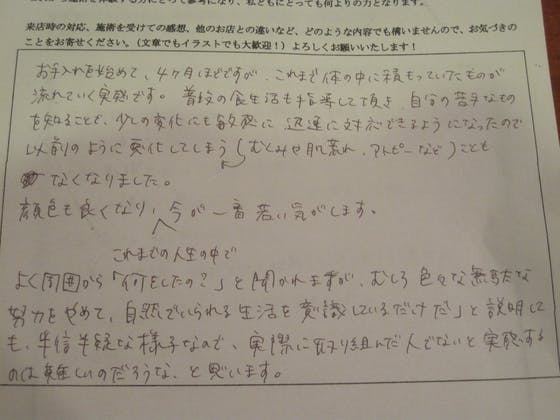 来店時の対応、施術を受けての感想、他のお店との違いなど、どのような内容でも構いませんので、お気づきの
ことをお寄せください。(文章でもイラストでも大歓迎！) よろしくお願いいたします！
お手入れを始めて、4ヶ月ほどですが、これまで体の中に積もっていたものが
流れていく実感です。普段の食生活も指導して頂き、自分の苦手なもの
を知ることで、少しの変化にも敏感に 迅速に対応できるようになったので
以前のように悪化してしまう(むくみや肌荒れ、アトピーなど)ことも
なくなりました。
顔色も良くなり、今が一番若い気がします。
これまでの人生の中で
よく周囲から「何をしたの？」と聞かれますが、むしろ色々な無駄な
努力をやめて、自然でいられる生活を意識しているだけだ」と説明して
も、半信半疑な様子なので、実際に取り組んだ人でないと実感する
のは難しいのだろうな、と思います。